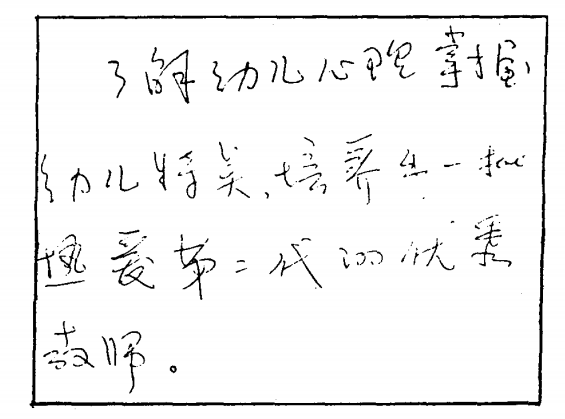 了解幼儿心理掌握
幼儿特点,培养出一批
热爱第二代的优秀
教师。